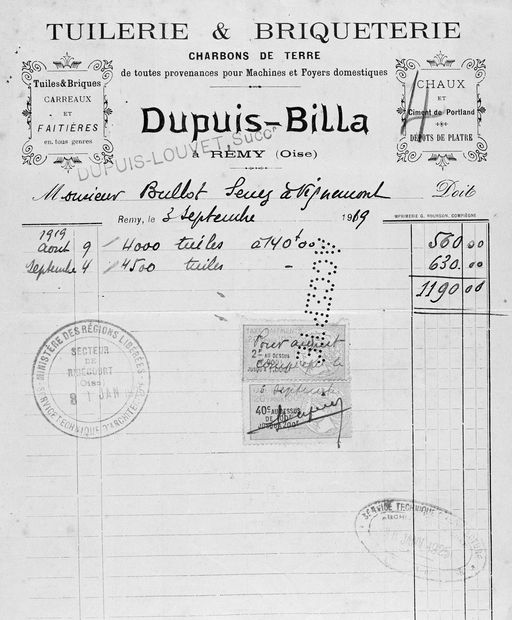 TUILERIE & BRIQUETERIE
CHARBONS DE TERRE
de toutes provenances pour Machines et Foyers domestiques
Tuiles & Briques
CARREAUX
ET
FAITIÈRES
en tous genres
CHAUX
ET
Ciment de Portland
DÉPOTS DE PLATRE
Dupuis-Billa
DUPUIS-LOUVET, Succr
à RÉMY (Oise)
Monsieur Bullot à Vignemont Doit
Remy, le 3 Septembre 1919
IMPRIMERIE G. COMPIÈGNE
1919
Aout 9 4000 tuiles à 140f 00 560 00
Septembre 4 4500 tuiles - 630 00
1190 00
MINISTÈRE DES RÉGIONS LIBÉRÉES
SECTEUR
DE
(Oise)
JAN
SERVICE TECHNIQUE D'ARCHITECTURE
Pour acquit
2F AU DESSUS
6 Septembre
40c AU DESSUS
SERVICE TECHNIQUE